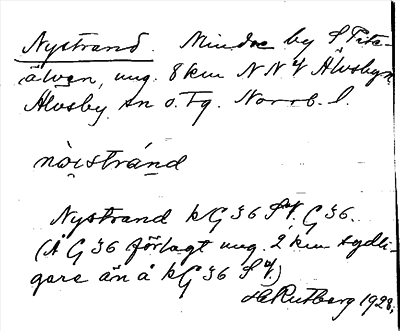 Nystrand. Mindre by S Pite-
älven, ung. 8 km NNV Älvsbyn
Älvsby sn o. Tg. Norrb. l.
nòistránd
Nystrand kG 36 SV. G 36.
(Å G 36 förlagt ung. 2 km sydli-
gare än å kG 36 SV.)
HRutberg 1928.